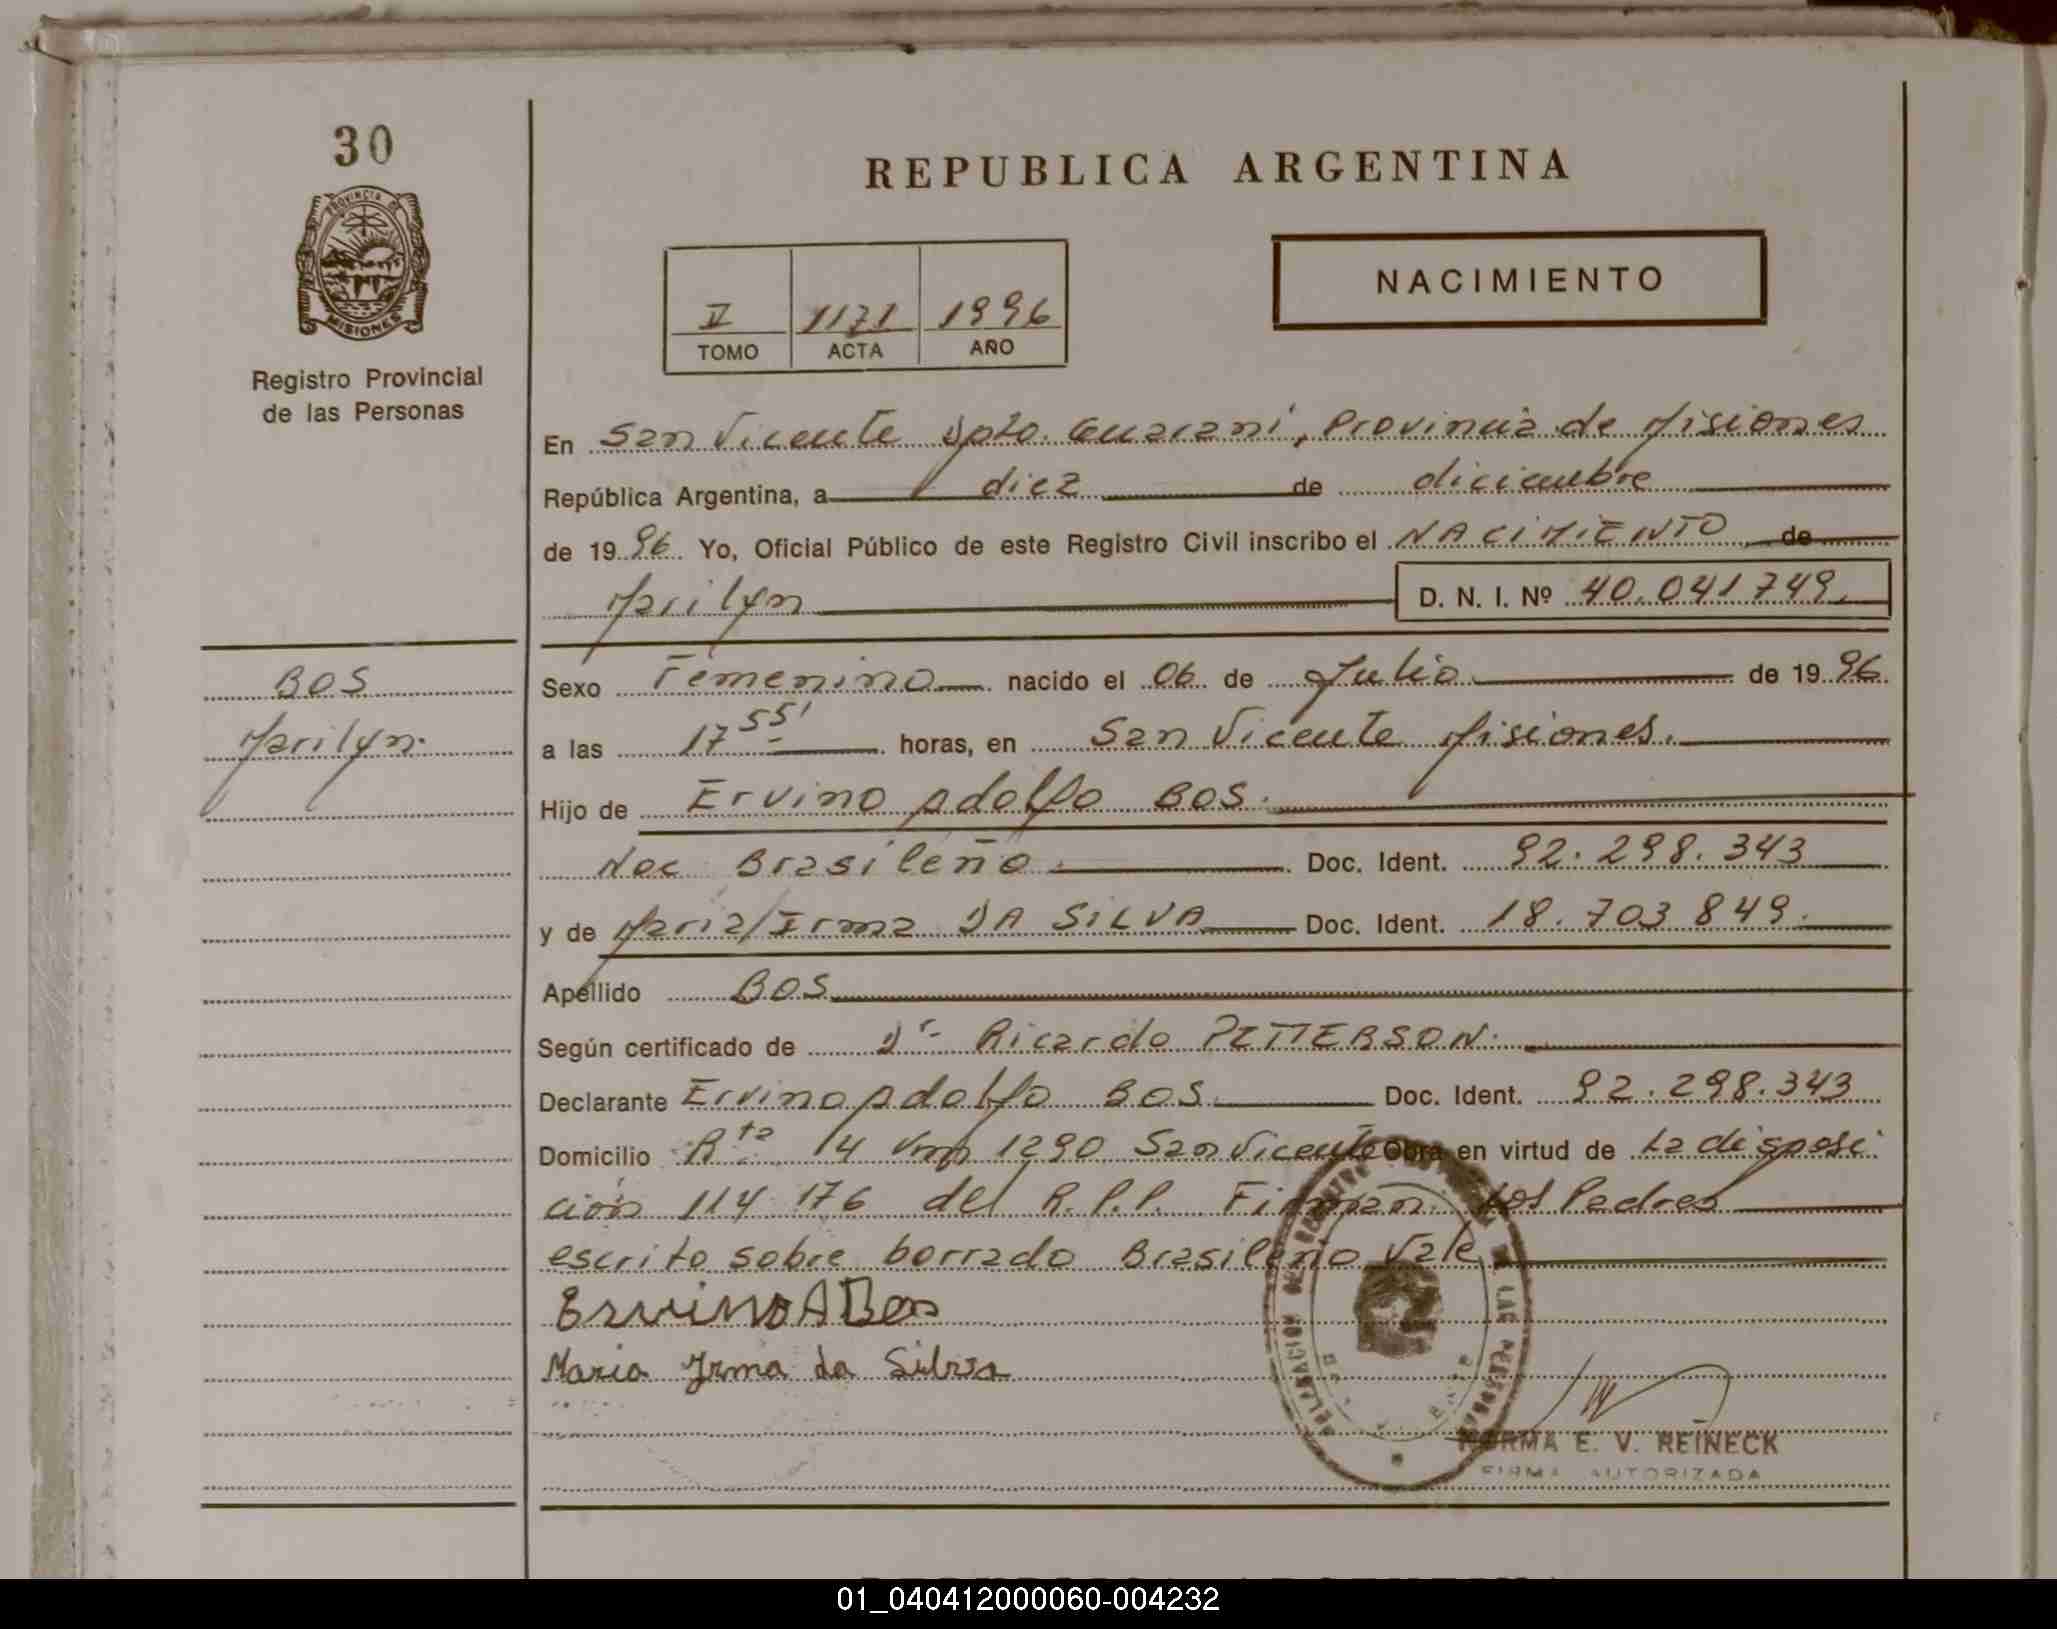 30
PROVINCIA DE
MISIONES
Registro Provincial
de las Personas
REPUBLICA ARGENTINA
NACIMIENTO
V 1171 1996
TOMO ACTA AÑO
En San Vicente Dpto. Guaraní, Provincia de Misiones
República Argentina, a diez de diciembre
de 1996 Yo, Oficial Público de este Registro Civil inscribo el NACIMIENTO de
Marilyn D. N. I. Nº 40.041.749.
BOS
Marilyn
Sexo Femenino nacido el 06 de Julio de 1996
a las 17 55' horas, en San Vicente Misiones.
Hijo de Ervino Adolfo BOS.
Nac Brasileño. Doc. Ident. 92.298.343
y de Maria Irma DA SILVA Doc. Ident. 18.703.849.
Apellido BOS
Según certificado de Dr. Ricardo PETTERSON.
Declarante Ervino Adolfo BOS Doc. Ident. 92.298.343
Domicilio Rta 14 Km 1290 San Vicente Obra en virtud de La disposi
ción 114 176 del R.P.P. Firman Los Padres
escrito sobre borrado Brasileño Vale
Ervino A Bos
Maria Irma da Silva
NORMA E. V. REINECK
FIRMA AUTORIZADA
01_040412000060-004232